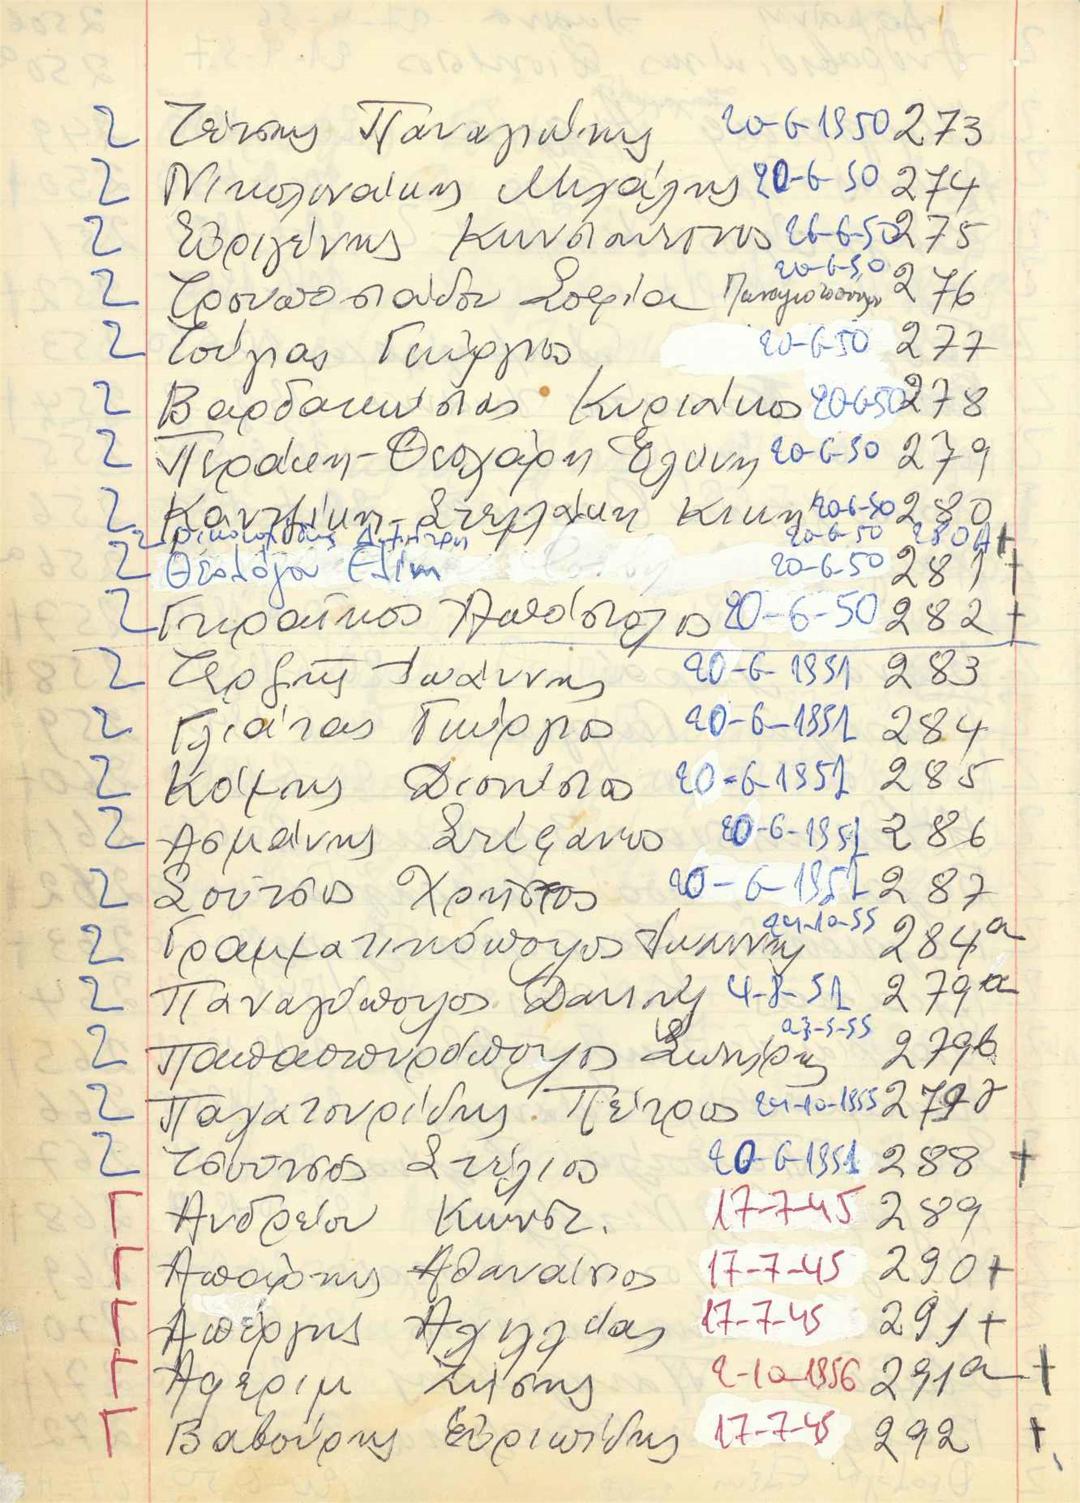 2 Τσίτσης Παναγιώτης 20-6-1950 273
2 Νικολινάκης Μιχάλης 20-6-50 274
2 Ευριγένης Κωνσταντίνος 26-6-50 275
20-6-50
2 Σοφία Παναγιωτοπούλου 276
2 Τσίγιας Γεώργιος 20-6-50 277
2 Βαρδακώστας Κυριάκος 20-6-50 278
2 Πιεράκη-Θεοχάρη Ελένη 20-6-50 279
2 Στελλάκη Κική 20-6-50 280
2 Δημήτρη 20-6-50 280A+
2 Θεολόγου Ελένη 20-6-50 281+
2 Γκεραΐκος Απόστολος 20-6-50 282+
2 Τερζής Ιωάννης 20-6-1951 283
2 Γλιάτας Γεώργιος 20-6-1951 284
2 Κόμης Διονύσιος 20-6-1951 285
2 Ασμάνης Στέφανος 20-6-1951 286
2 Σούτσος Χρήστος 20-6-1951 287
2 Γραμματικόπουλος Ιωάννης 24-10-55 284α
2 Παναγόπουλος Δανιήλ 4-8-51 279α
2 Παπασπυρόπουλος Σωτήρης 27-5-55 279b
2 Παλατουρίδης Πέτρος 24-10-1955 279γ
2 Στέλιος 20-6-1951 288 +
Γ Ανδρέου Κωνστ. 17-7-45 289
Γ Απέργης Αθανάσιος 17-7-45 290+
Γ Απέργης Αχιλλέας 17-7-45 291+
Γ Αφερίμ Ζήσης 2-10-1956 291α +
Γ Βαβούρης Ευριπίδης 17-7-45 292 +